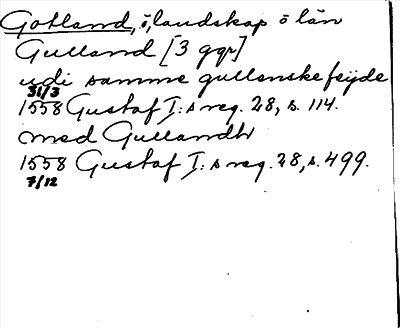 Gotland, ö, landskap o län
Gulland [3 ggr]
udi samme gullenske feijde
31/3
1558 Gustaf I:s reg. 28, s. 114.
med Gullandh
1558 Gustaf I:s reg. 28, s. 499.
7/12